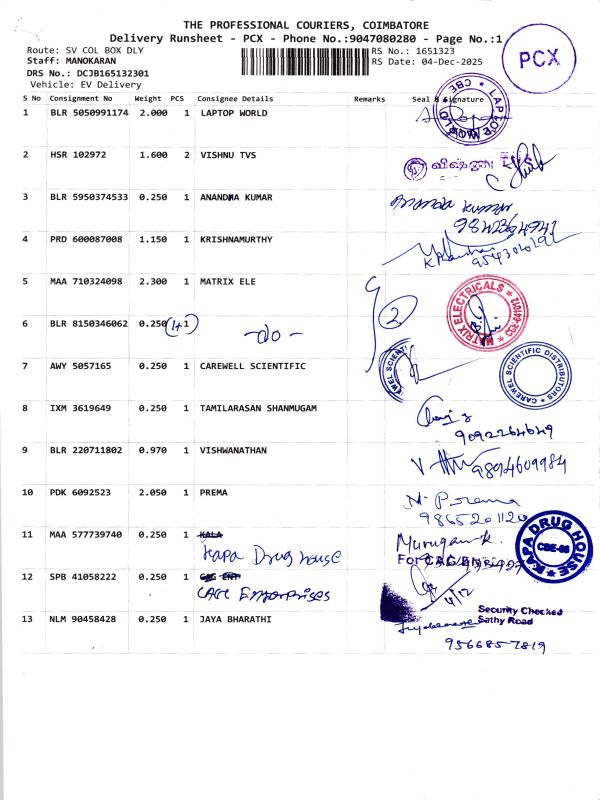 THE PROFESSIONAL COURIERS, COIMBATORE
Delivery Runsheet - PCX - Phone No.:9047080280 - Page No.:1
Route: SV COL BOX DLY
RS No.: 1651323
Staff: MANOKARAN
RS Date: 04-Dec-2025
DRS No.: DCJB165132301
Vehicle: EV Delivery
PCX
S No Consignment No Weight PCS Consignee Details Remarks Seal & Signature
1 BLR 5050991174 2.000 1 LAPTOP WORLD
LAPTOP WORLD CBE
2 HSR 102972 1.600 2 VISHNU TVS
விஷ்ணு
3 BLR 5950374533 0.250 1 ANANDHA KUMAR
4 PRD 600087008 1.150 1 KRISHNAMURTHY
5 MAA 710324098 2.300 1 MATRIX ELE
2
MATRIX ELECTRICALS
6 BLR 8150346062 0.250 (1+1)
-do-
7 AWY 5057165 0.250 1 CAREWELL SCIENTIFIC
CAREWEL SCIENTIFIC DISTRIBUTORS
8 IXM 3619649 0.250 1 TAMILARASAN SHANMUGAM
9092264649
9 BLR 220711802 0.970 1 VISHWANATHAN
9894609984
10 PDK 6092523 2.050 1 PREMA
N. Prema
9865201120
11 MAA 577739740 0.250 1 KALA
Kapa Drug house
Murugan.K.
KAPA DRUG HOUSE
CBE-
12 SPB 41058222 0.250 1
CAG Enterprises
For CAG EN
4/12
Security Checked
Sathy Road
13 NLM 90458428 0.250 1 JAYA BHARATHI
9566857819